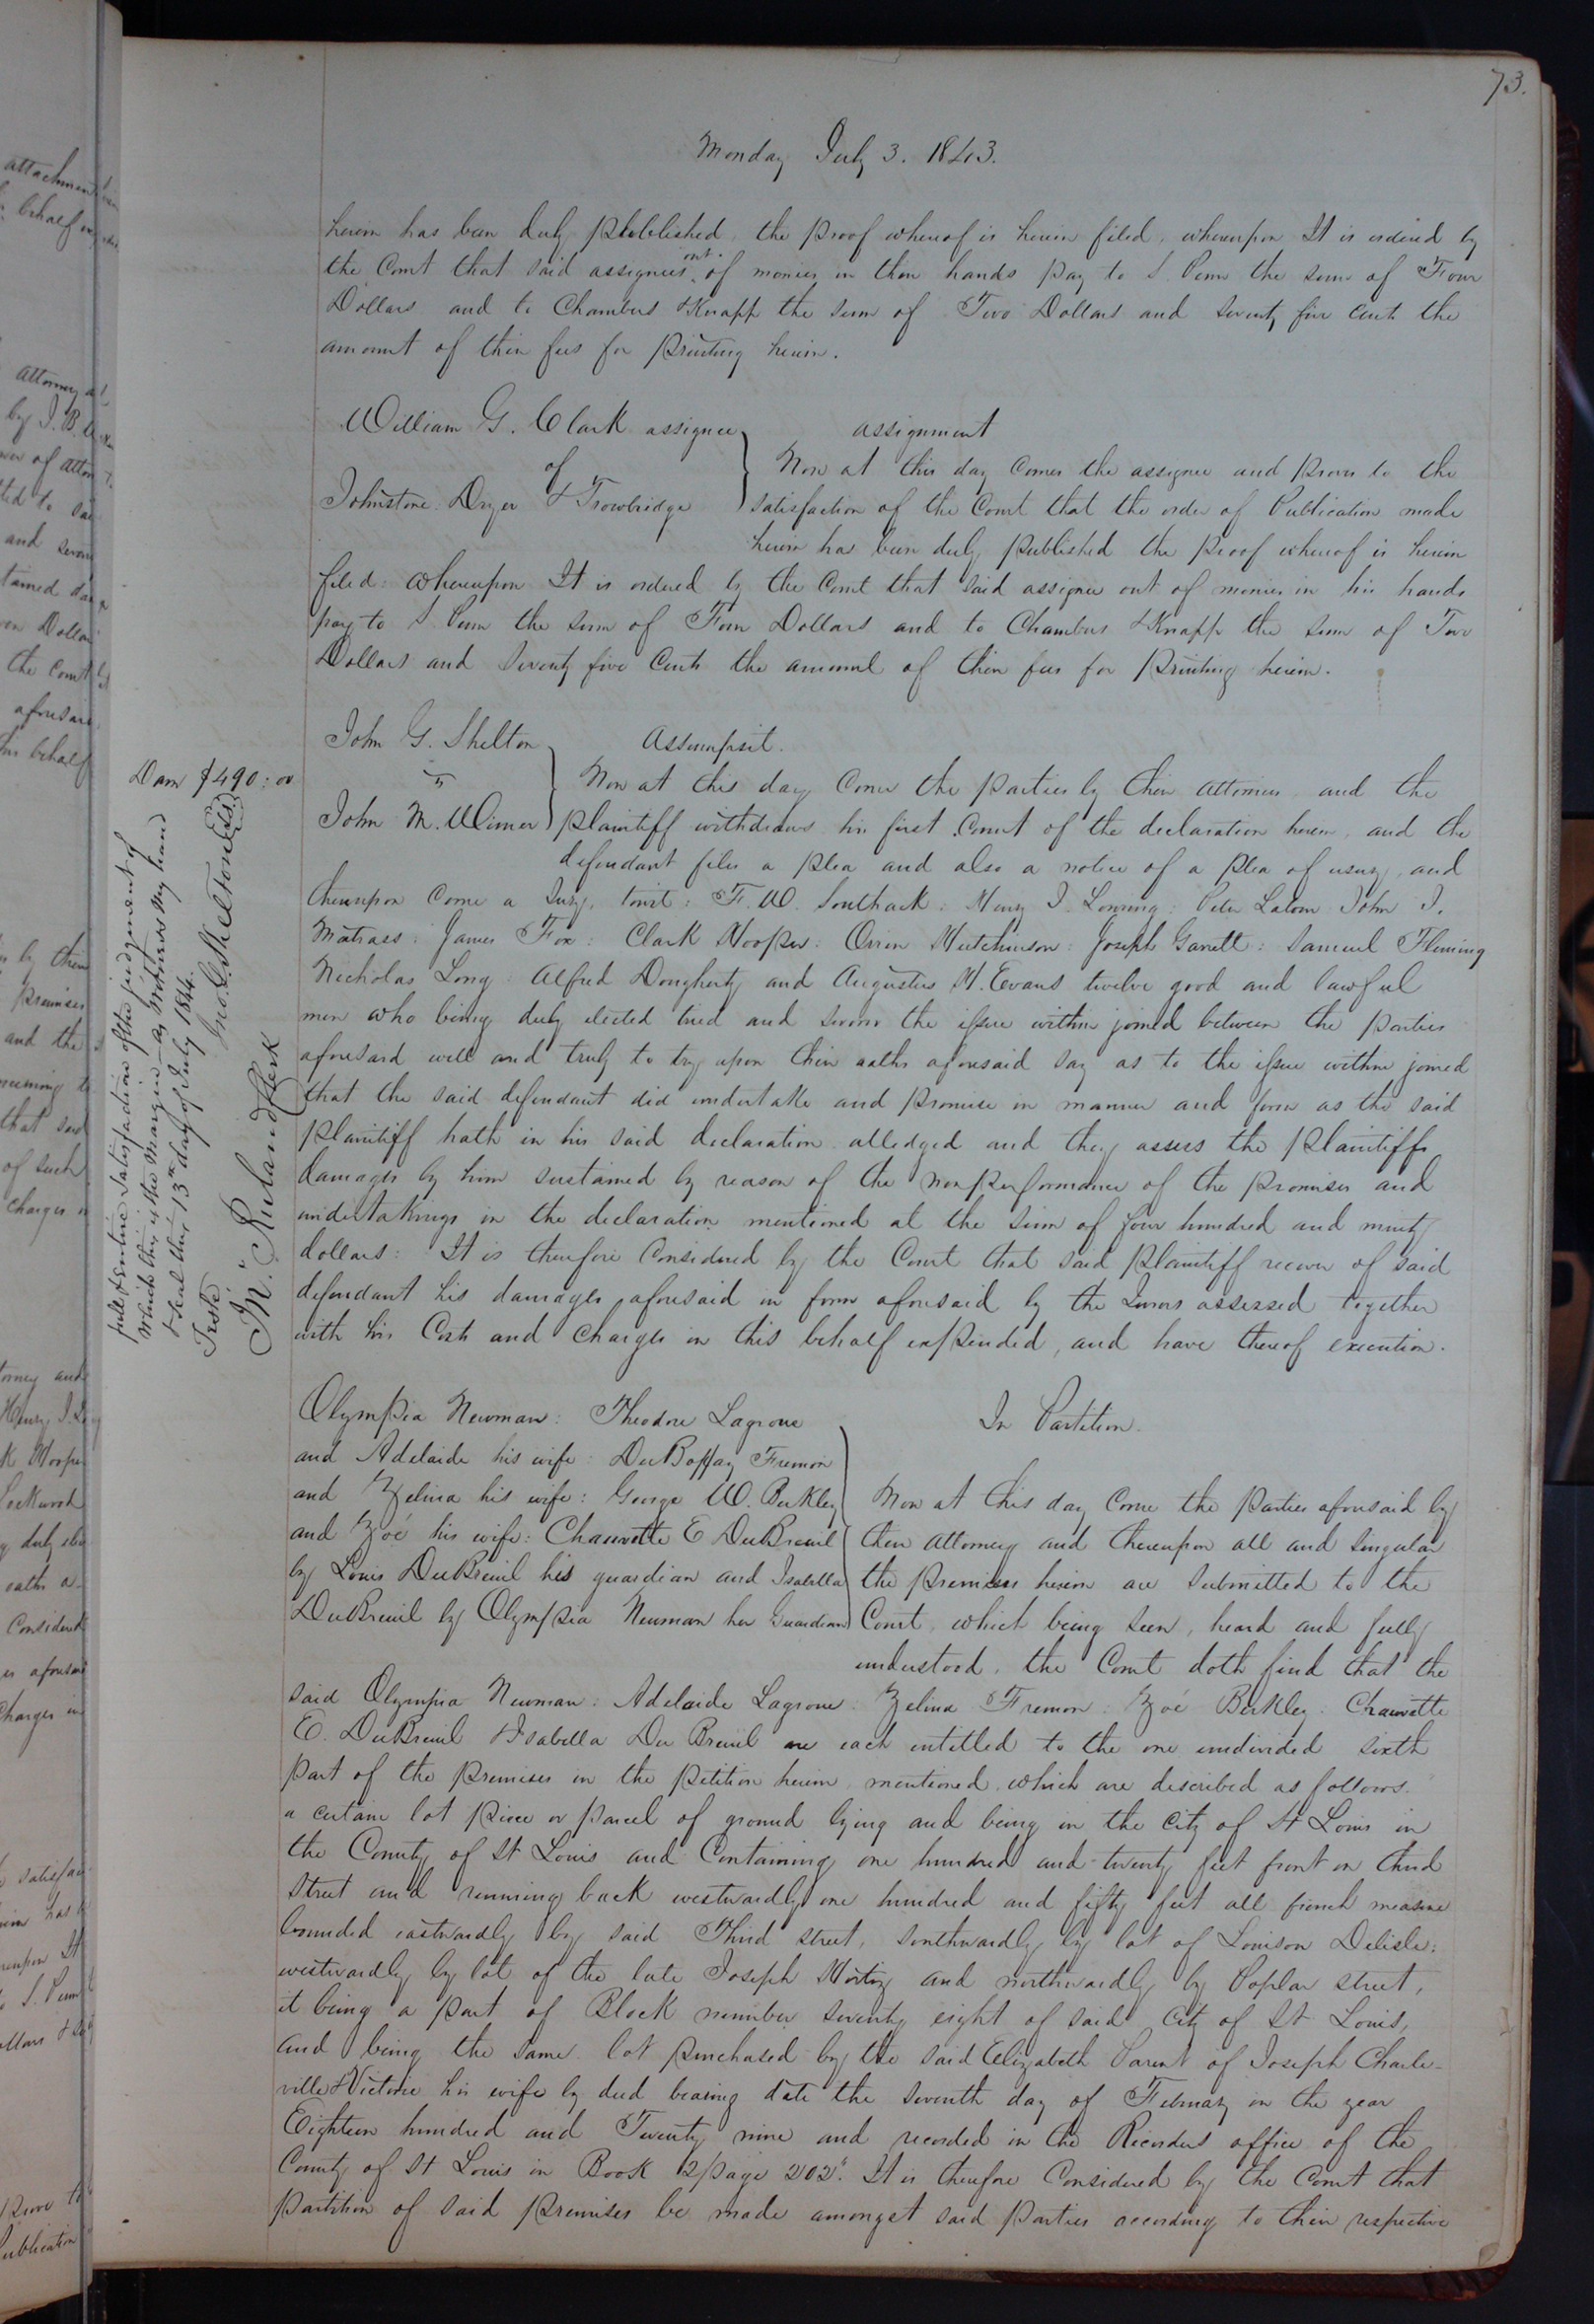 73.
Monday July 3. 1843.
herein has been duly published, the proof whereof is herein filed, whereupon It is ordered by
the Court that said assignees out of monies in their hands pay to S. Penn the sum of Four
Dollars and to Chambers & Knapp the sum of Two Dollars and seventy five Cents the
amount of their fees for printing herein.
William G. Clark assignee
of
Johnstone Dryer & Trowbridge
assignment
Now at this day Comes the assignee and proves to the
satisfaction of the Court that the order of Publication made
herein has been duly published the proof whereof is herein
filed: whereupon It is ordered by the Court that said assignee out of monies in his hands
pay to S. Penn the sum of Four Dollars and to Chambers & Knapp the sum of Two
Dollars and Seventy five Cents the amount of their fees for printing herein.
John G. Shelton
vs
John M. Wimer
Assumpsit.
Now at this day Come the parties by their attornies and the
plaintiff withdraws his first Count of the declaration herein, and the
defendant files a plea and also a notice of a plea of usury, and
thereupon Come a Jury, towit: F. W. Southack: Henry J. : Peter John J.
: James Fox: Clark Hooper: Orrin Hutchinson: Joseph Garrett: Samuel Fleming
Nicholas Long: Alfred Dougherty and Augustus H. Evans twelve good and lawful
men who being duly elected tried and sworn the issue within joined between the parties
aforesaid well and truly to try upon their oaths aforesaid say as to the issue within joined
that the said defendant did undertake and promise in manner and form as the said
plaintiff hath in his said declaration alledged and they assess the plaintiffs
damages by him sustained by reason of the nonperformance of the promises and
undertakings in the declaration mentioned at the sum of four hundred and ninety
dollars: It is therefore Considered by the Court that said plaintiff recover of said
defendant his damages aforesaid in form aforesaid by the Jurors assessed together
with his Costs and Charges in this behalf expended, and have thereof execution.
Dam $490:00
full & entire satisfaction of the judgement of
which this is the margin as witness my hand
& seal this 13th day of July 1844.
Jno. G. Shelton
Teste
M. Ruland Clerk
Olympia Newman: Theodore Lagrone
and Adelaide his wife: DuBoffay Fremon
and Zelina his wife: George W. Berkley
and Zoé his wife: Chauvette E DuBreuil
by Louis DuBreuil his guardian and Isabella
DuBreuil by Olympia Newman her Guardian
In Partition.
Now at this day Come the parties aforesaid by
their attorney and thereupon all and singular
the premises herein are submitted to the
Court, which being seen, heard and fully
understood, the Court doth find that the
said Olympia Newman: Adelaide Lagrone: Zelina Fremon: Zoé Berkley: Chauvette
E. DuBreuil & Isabella Du Breuil are each entitled to the one undivided sixth
part of the premises in the petition herein mentioned, which are described as follows.
a certain lot piece or parcel of ground lying and being in the City of St Louis in
the County of St Louis and Containing one hundred and twenty feet front on third
street and running back westwardly one hundred and fifty feet all french measure
bounded eastwardly by said Third street, southwardly by lot of Louison Delisle:
westwardly by lot of the late Joseph Hortiz and northwardly by Poplar street,
it being a part of Block number seventy eight of said City of St Louis,
and being the same lot purchased by the said Elizabeth Parent of Joseph Charle-
ville & Victorie his wife by deed bearing date the seventh day of February in the year
Eighteen hundred and Twenty nine and recorded in the Recorders office of the
County of St Louis in Book page 202. It is therefore Considered by the Court that
partition of said premises be made amongst said parties according to their respective